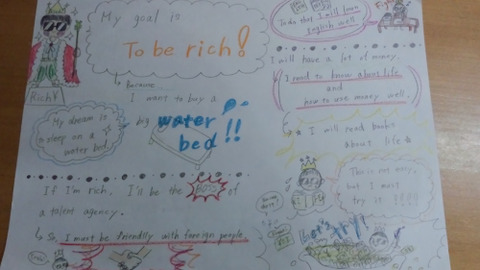 My goal is
To be rich!
Rich!
because
I want to buy a
big water bed!!
My dream is
a sleep on a
water bed.
If I'm rich. I'll be the BOSS of
a talent agency.
So, I must be friendly with foreign people.
To do that I will learn
English well
Fight
I will have a lot of money.
I need to know about life
and
how to use money well.
I will read books
about life
This is not easy,
but I must
try it !!!!
Let's try!